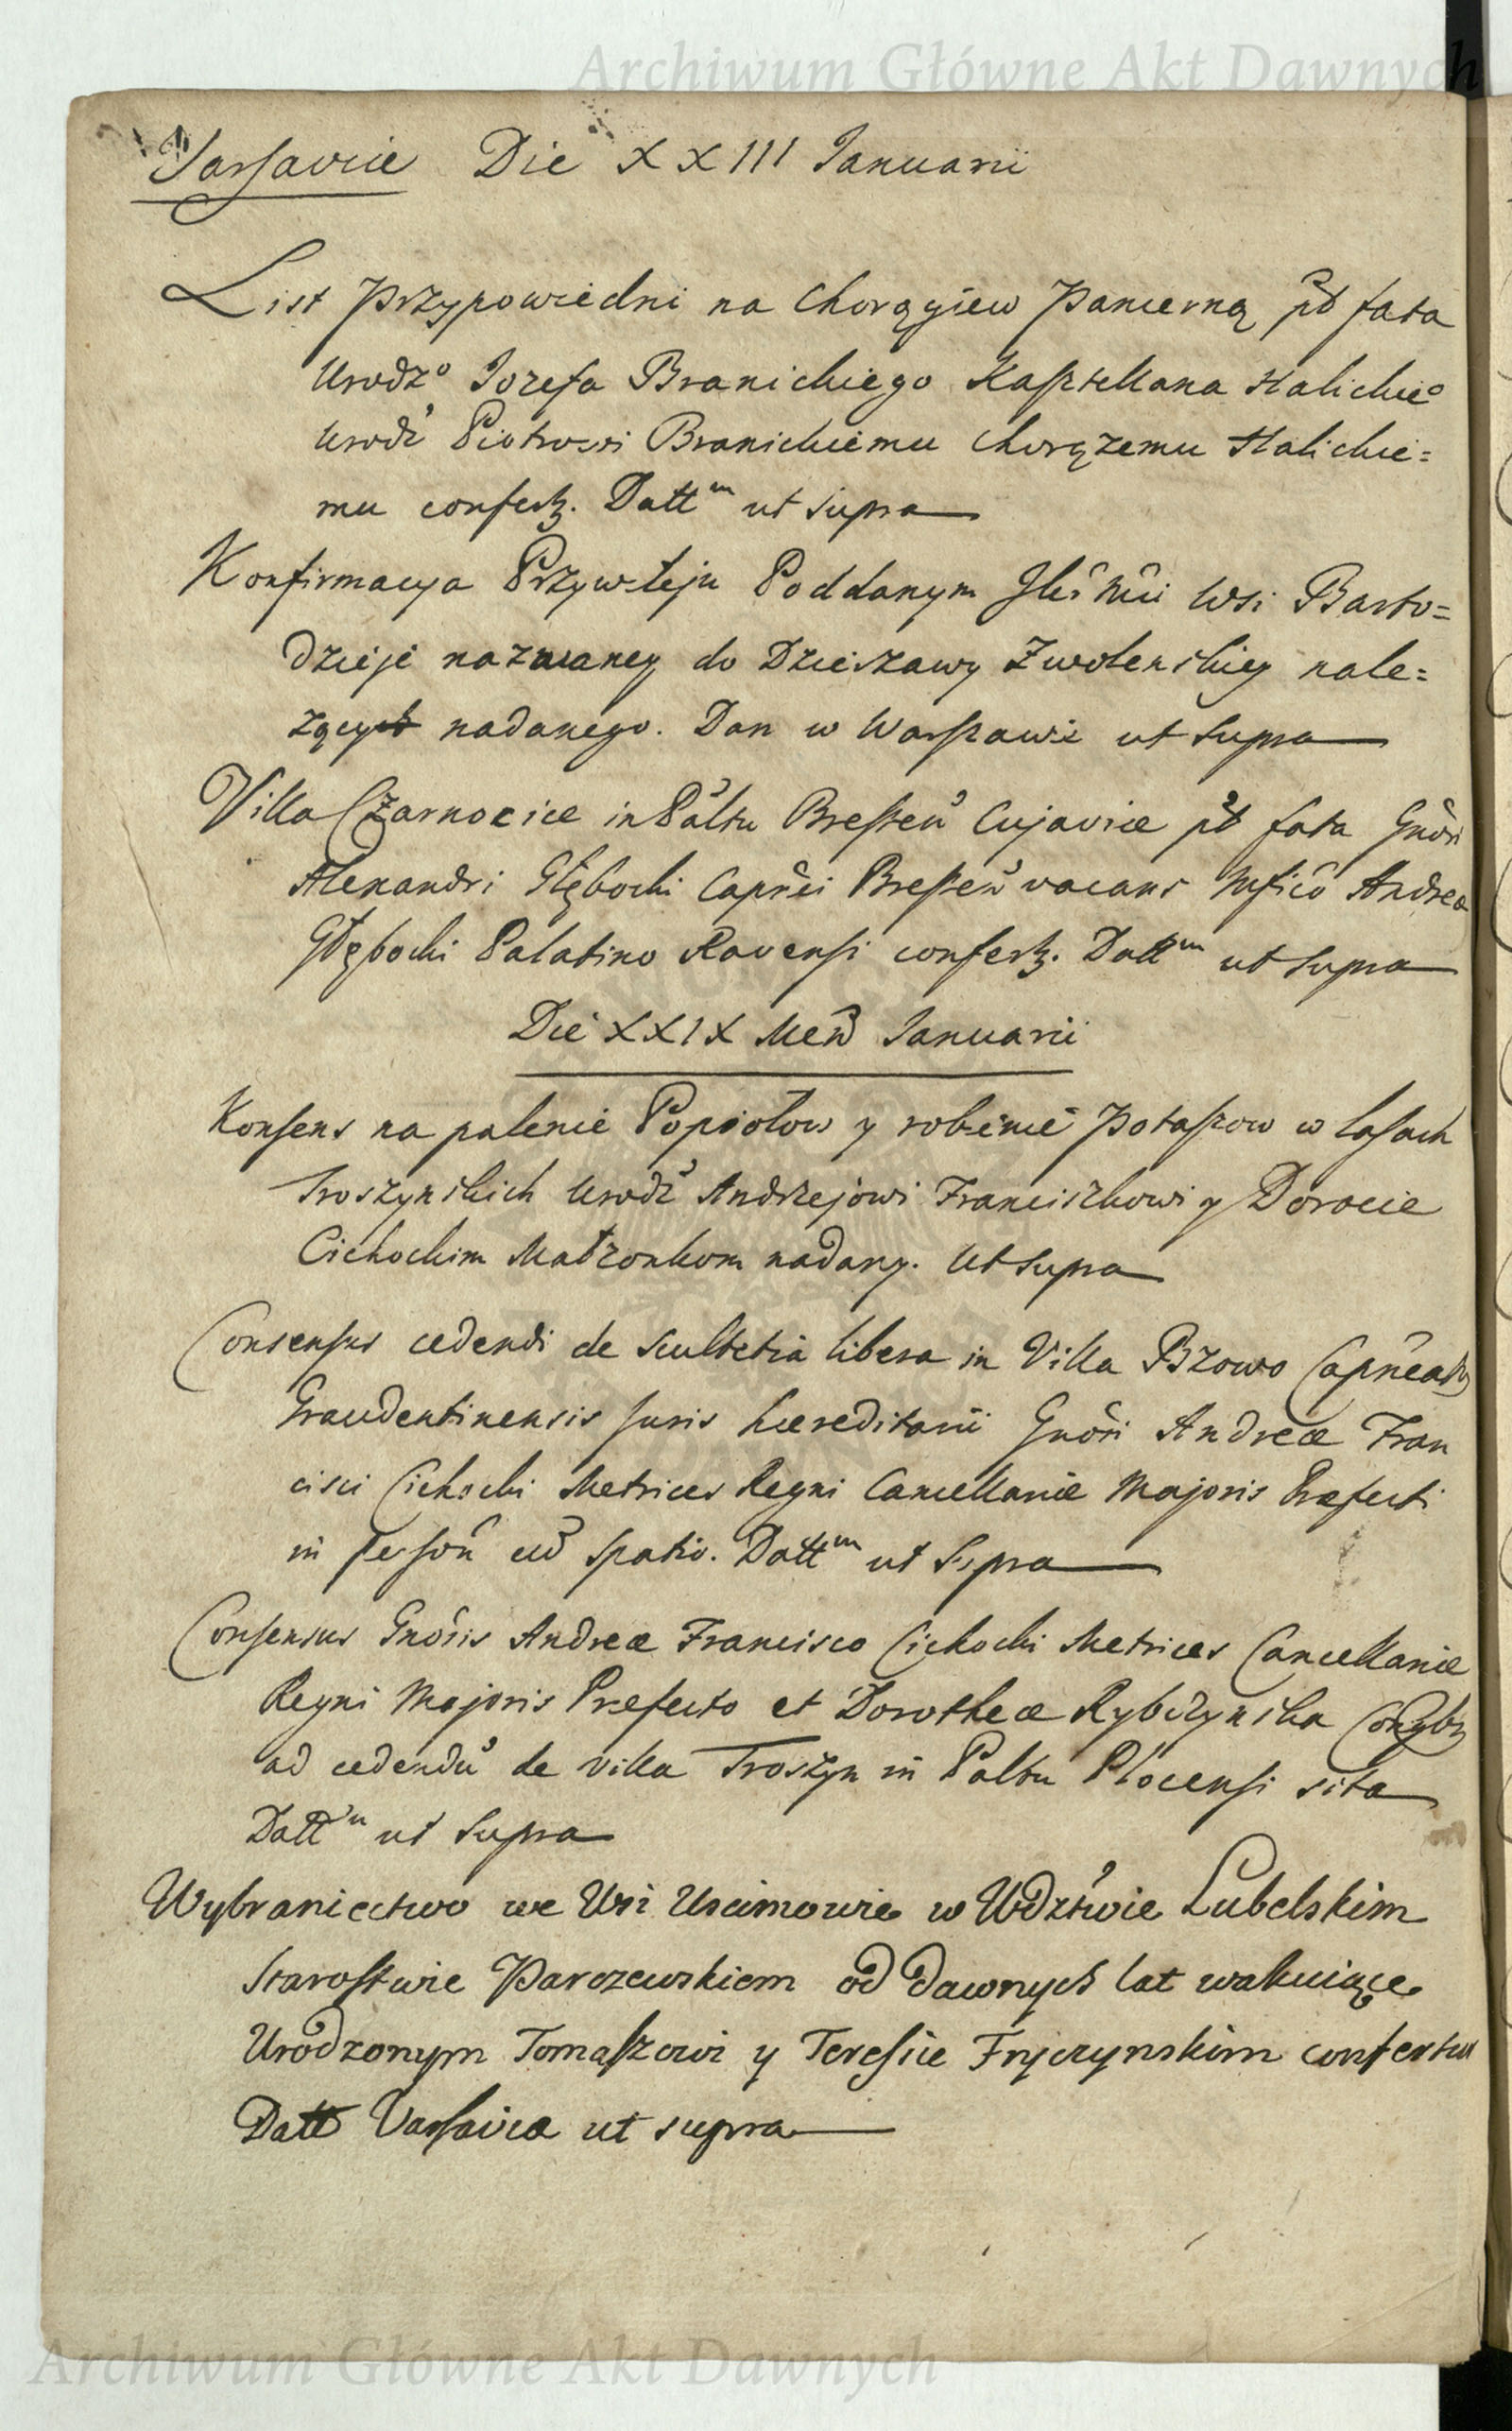 Archiwum Główne Akt Dawnych
Varsaviæ Die XXIII Ianuarii
List Przypowiedni na Chorągiew Pancerną pt fata
Urodzo Iozefa Branickiego Kasztellana Halickieo
Urodz Piotrowi Branickiemu Chorążemu Halickie=
mu confertz. Dattm ut supra
Konfirmacya Przywileju Poddanym Wsi Barto=
dzieje nazwaney do Dzierzawy Zwolenskiey nale=
zących nadanego. Dan w Warszawie ut supra
Villa Czarnocice in Paltu Bresten Cujaviæ pt fata Gnosi
Alexandri Głębocki Capnei Bresten vacans Mfico Andreæ
Głębocki Palatino Ravensi confertz. Dattm ut supra
Die XXIX Mens Ianuarii
Konsens na palenie Popiołow y robienie Potaszow w lasach
Troszynskich Urodz Andrzejowi Franciszkowi y Dorocie
Cichockim Małzonkom nadany. Ut supra
Consensus cedendi de Scultetia libera in Villa Bzowo Capneatus
Graudentinensis Juris hæreditarii Gnosi Andreæ Fran
cisci Cichocki Metrices Regni Cancellariæ Majoris Præfecti
in person cu spatio. Dattm ut Supra
Consensus Gnosis Andreæ Francisco Cichocki Metrices Cancellariæ
Regni Majoris Præfecto et Dorotheæ Rybczynska Conjybz
ad cedendu de villa Troszyn in Paltu Plocensi sita
Dattm ut Supra
Wybraniectwo we Wsi Uscimowie w Wdztwie Lubelskim
Starostwie Parczewskiem od dawnych lat wakuiące
Urodzonym Tomaszowi y Teresie Fryczynskim confertur
Datt Varsaviæ ut supra
Archiwum Główne Akt Dawnych